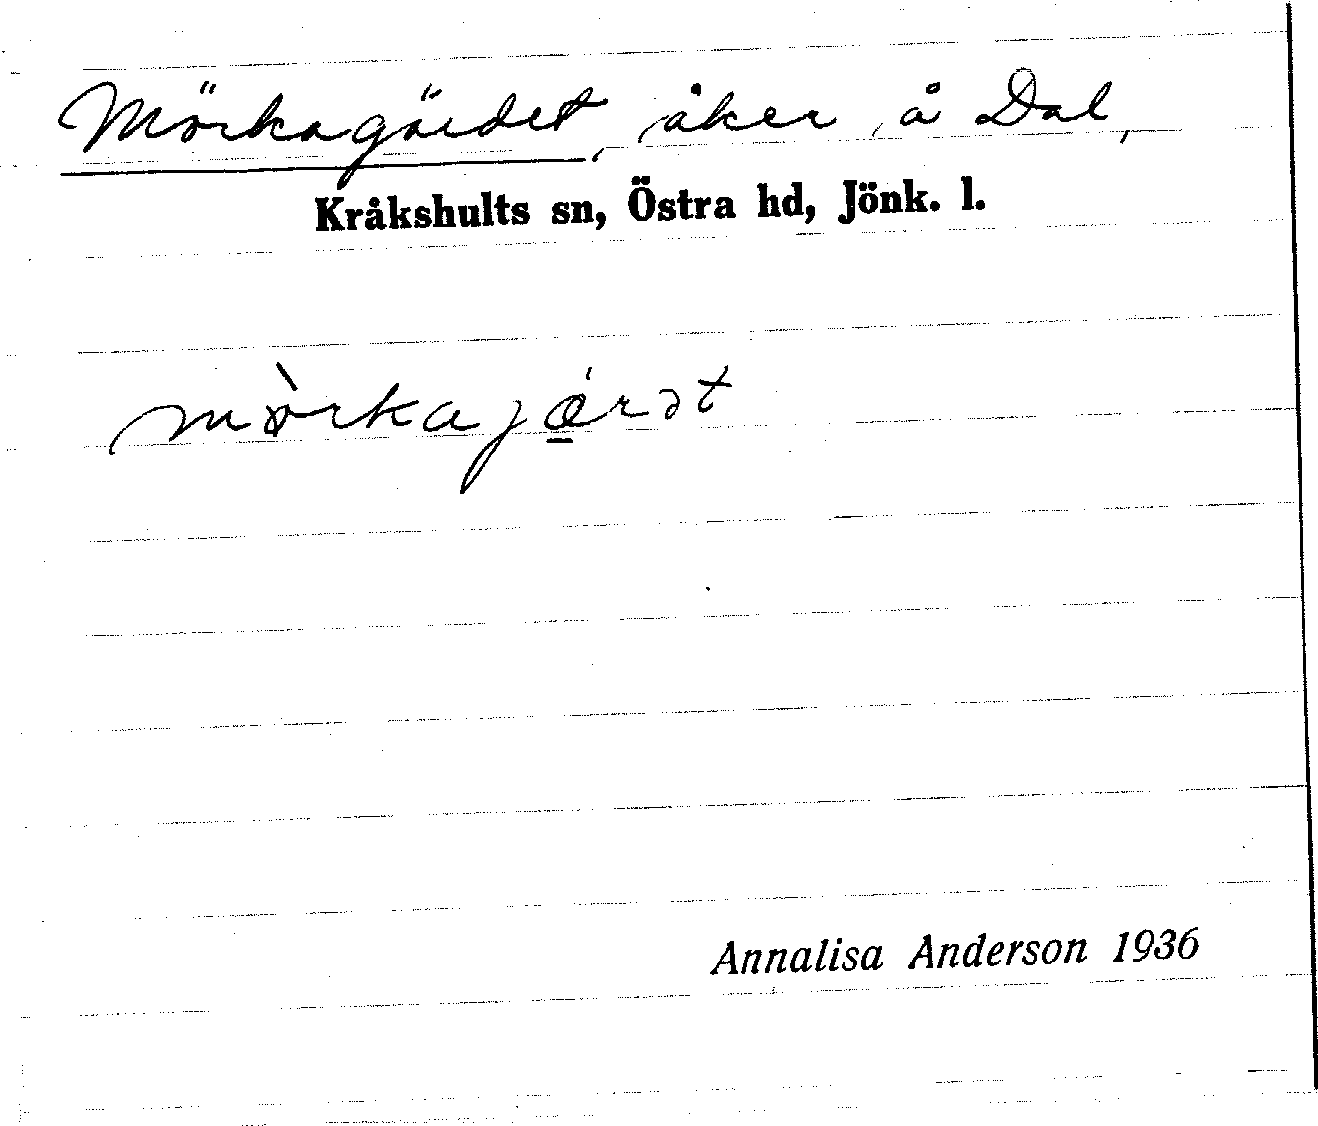 Mörkagärdet, åker å Dal,
Kråkshults sn, Östra hd, Jönk. l.
mörkajärət
Annalisa Anderson 1936